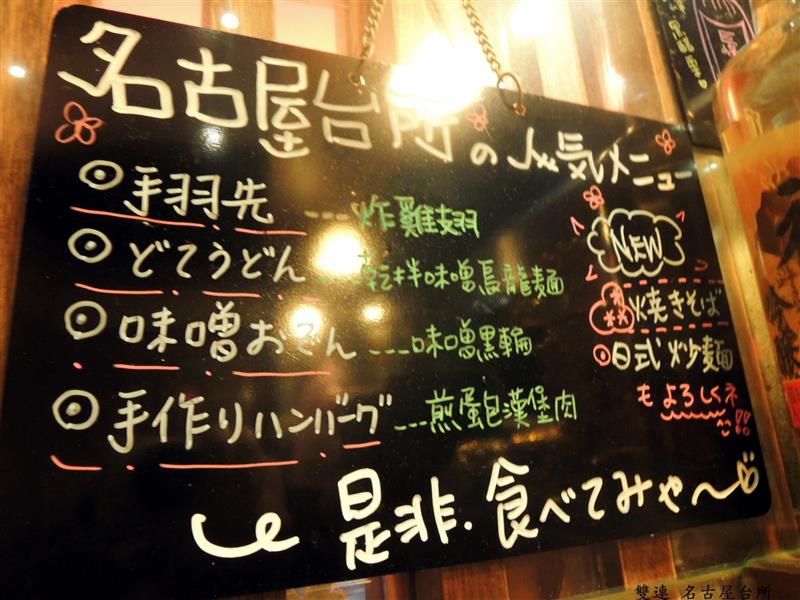 名古屋台所の人気メニュー
手羽先 --- 炸雞翅
どてうどん --- 乾拌味噌烏龍麵
味噌おでん ---味噌黑輪
手作りハンバーグ ---煎蛋包漢堡肉
NEW
焼きそば
日式炒麵
もよろしくネ!!
是非.食べてみや〜
雙連 名古屋台所